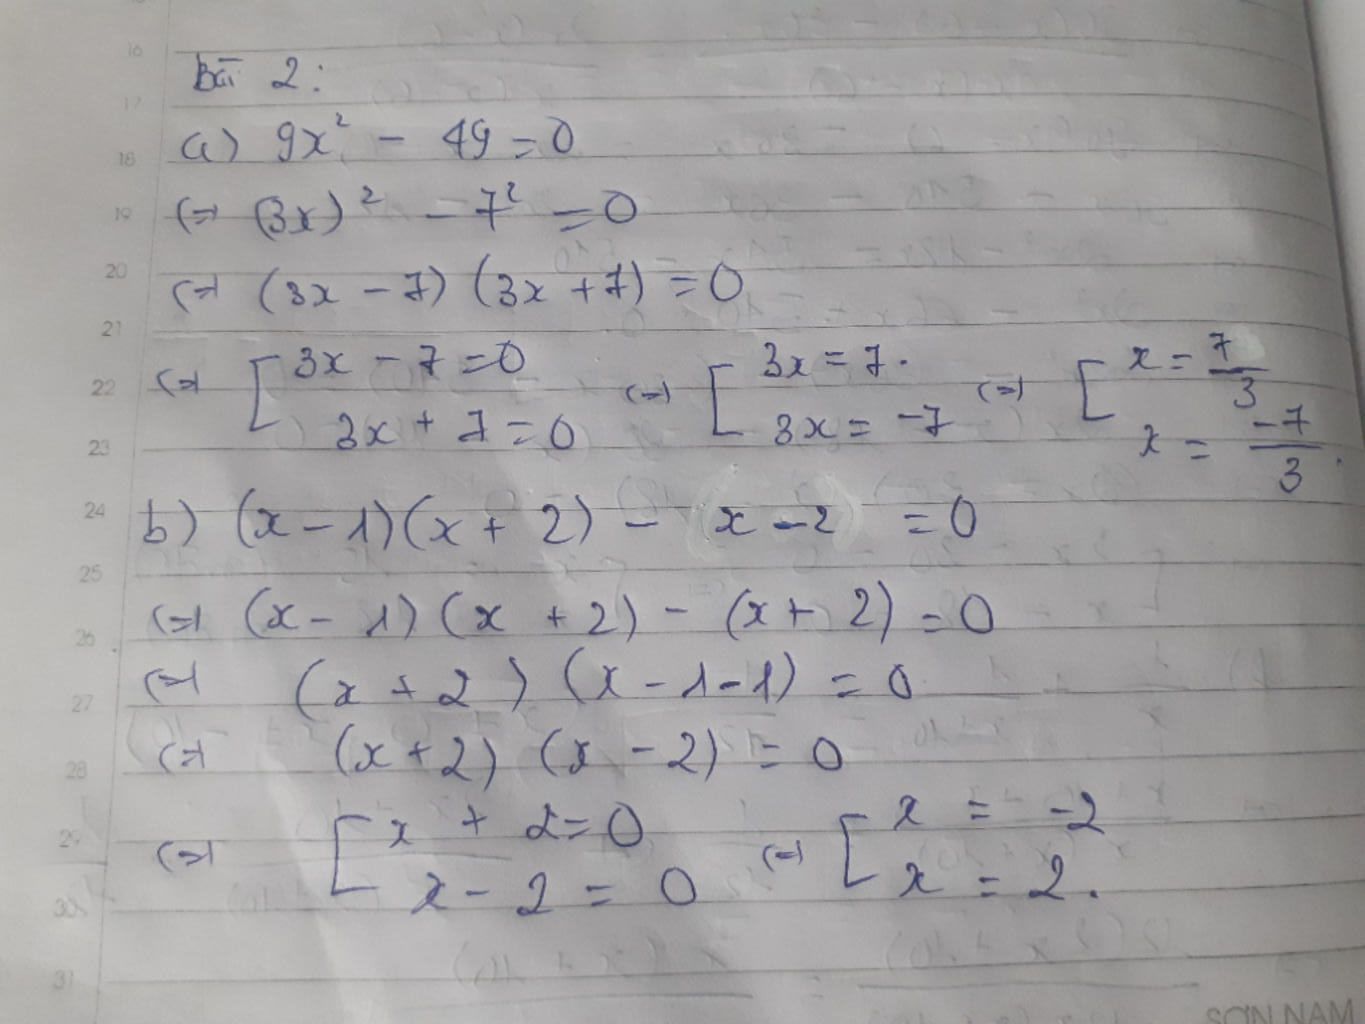 16
Bài 2:
17
a) 9x² - 49 = 0
18
19 (=) (3x)² - 7² = 0
20 (=) (3x - 7) (3x + 7) = 0
21
22 (=) [ 3x - 7 = 0 (=) [ 3x = 7. (=) [ x = 7/3
3x + 7 = 0 3x = -7 x = -7/3.
23
24 b) (x - 1)(x + 2) - x - 2 = 0
25
26 (=) (x - 1) (x + 2) - (x + 2) = 0
27 (=) (x + 2) (x - 1 - 1) = 0
28 (=) (x + 2) (x - 2) = 0
29 (=) [ x + 2 = 0 (=) [ x = -2
30 x - 2 = 0 x = 2.
31
SƠN NAM